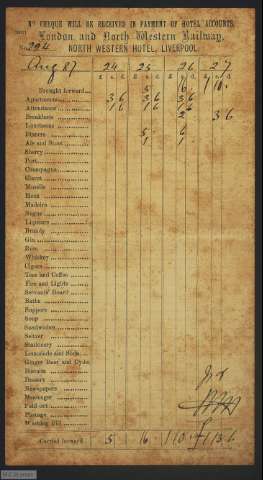 No CHEQUE WILL BE RECEIVED IN PAYMENT OF HOTEL ACCOUNTS.
London and North Western Railway.
No 294
NORTH WESTERN HOTEL, LIVERPOOL.
Aug 87 24 25 26 27
Brought forward 5 16 1 10
Apartments 3 6 3 6 3 6
Attendance 1 6 1 6 1 6
Breakfasts 2 3 6
Luncheons
Dinners 5 6
Ale and Stout 1 1
Sherry
Port
Champagne
Claret
Moselle
Hock
Madeira
Negus
Liqueurs
Brandy
Gin
Rum
Whiskey
Cigars
Teas and Coffee
Fire and Lights
Servants' Board
Baths
Suppers
Soup
Sandwiches
Seltzer
Stationery
Lemonade and Soda
Ginger Beer and Cyder
Biscuits
Dessert
Newspapers
Messenger
Paid out
Postage
Washing Bill
Carried forward 5 16 1 10 £1 13 6